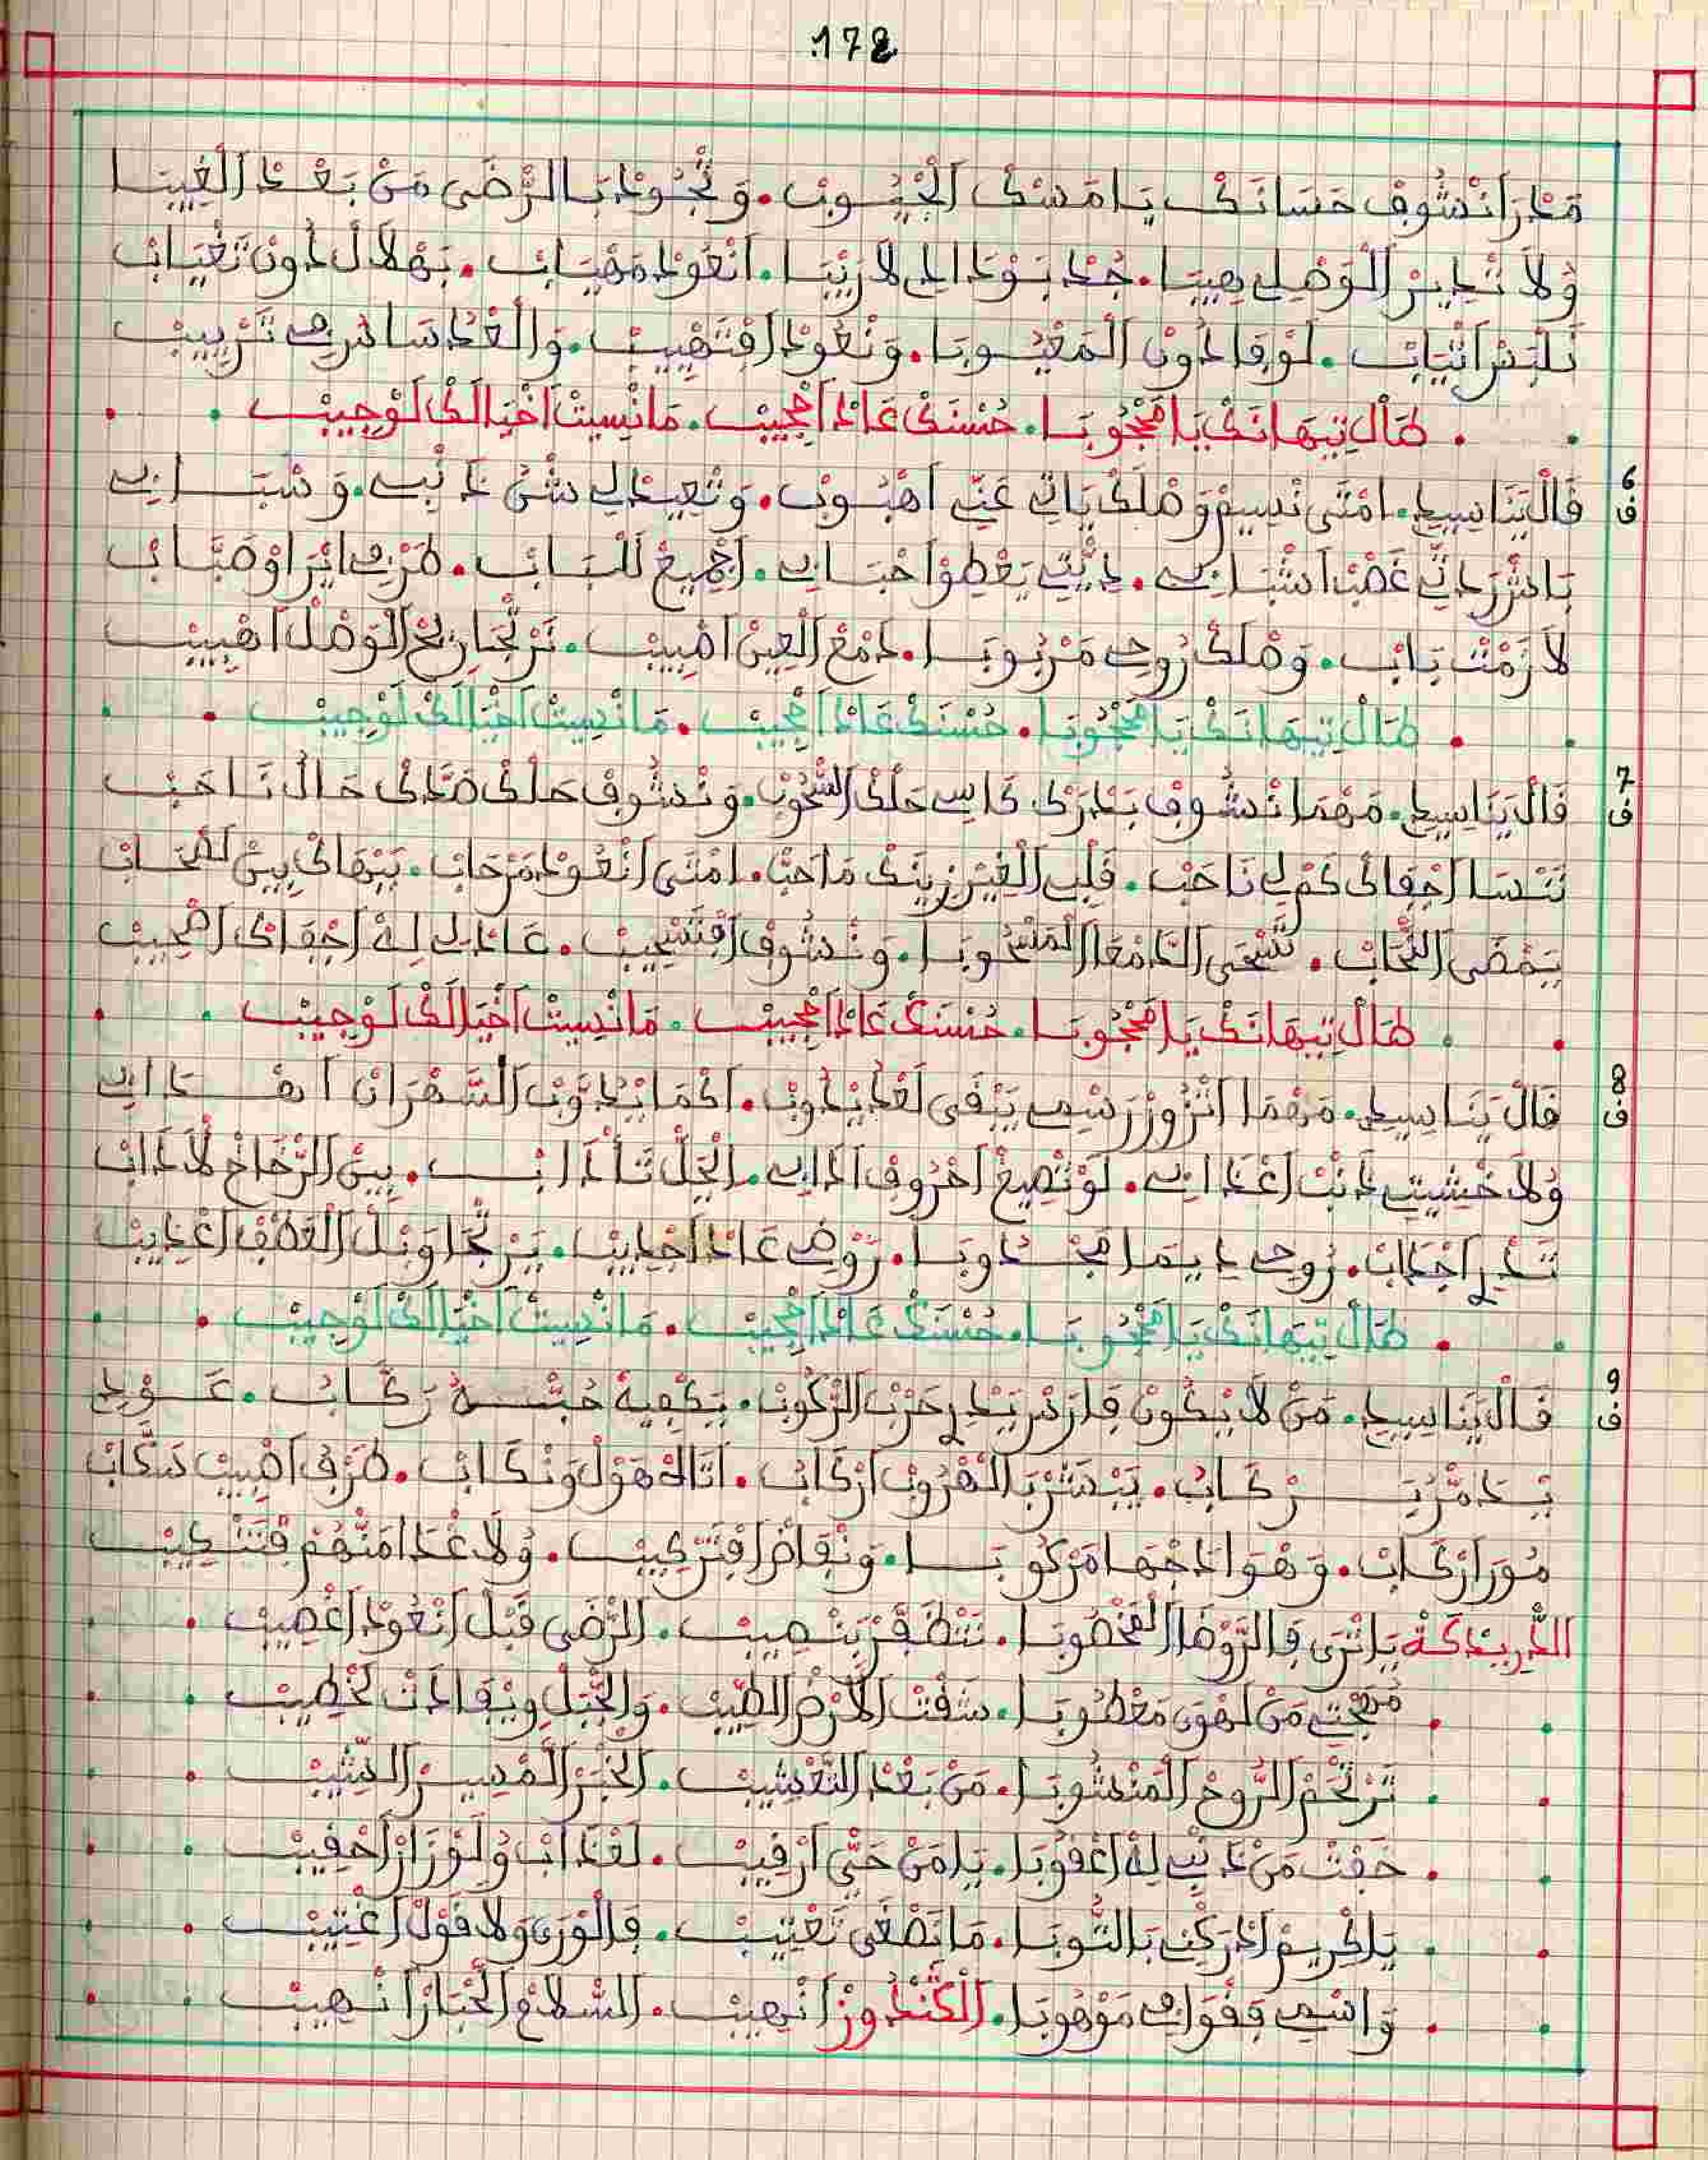 178
مَدْرَ انْشُوفْ حَسَانَكْ يَا مَسْكْ الْجْيُوبْ. وَتْجُودْ بَالرّْضَى مَنْ بَعْدْ الْغِيبَا
وُلاَ تْدِيرْ الْوَصْلِي هِيبَا. جُدْ بَوْدَادِي لاَ رِيبَا. انْعُودْ مَهْيَابْ. بَهْلاَلْ دُونْ تَغْيَابْ
نَلْبَسْ اثْيَابْ. لَوْفَا دُونْ الْمَعْيُوبَا. وَنْعُودْ افْتَهْيِيبْ. وَالْعْدَا سَاهْرِي تَرْيِيبْ
طَالْ تِيهَانَكْ يَا مَحْجُوبَا. حُسْنَكْ عَادْ اعْجِيبْ. مَا نْسِيتْ اخْيَالَكْ لَوْجِيبْ
6
ف
قَالْ يَنَا سِيدِي. امْتَى نْسِيمْ وَصْلَكْ يَاتِي عَنِّي اهْبُوبْ. وَتْعِيدْ لِي شَنْ ذَنْبِي. وَسْبَابِي
بَاشْ رَدْنِي غَصْبْ اشْبَابِي. دِيتِي يَعْطِوْ احْبَابِي. اجْمِيعْ لَلْبَابْ. طَرْفِي ايْرَا وْصَبَّابْ
لاَزَمْتْ بَابْ. وَصْلَكْ رُوحِي مَرْبُوبَا. دَمْعْ الْعِينْ اصْبِيبْ. نَرْتْجَا رِيحْ الْوَصْلْ اهْبِيبْ
طَالْ تِيهَانَكْ يَا مَحْجُوبَا. حُسْنَكْ عَادْ اعْجِيبْ. مَا نْسِيتْ اخْيَالَكْ لَوْجِيبْ
7
ف
قَالْ يَنَا سِيدِي. مَهْمَا نْشُوفْ بَدْرَكْ كَاسِي حَلْكْ السّْحُوبْ. وَنْشُوفْ حَلْكْ صَدَّكْ حَالْ نَاحَبْ
نَنْسَا اجْفَاكْ كَمْ لِي نَاحَبْ. قَلْبِي الْغِيرْ زِينَكْ مَا حَبّْ. امْتَى انْعُودْ مَرْحَابْ. بَبْهَاكْ بِينْ لَصْحَابْ
يَمْضَى النّْحَابْ. تَسْحَى الدَّامْعَا الْمَسْحُوبَا. وَنْشُوفْ افْتَسْحِيبْ. عَادْلِي لِهْ اجْفَاكْ اصْحِيبْ
طَالْ تِيهَانَكْ يَا مَحْجُوبَا. حُسْنَكْ عَادْ اعْجِيبْ. مَا نْسِيتْ اخْيَالَكْ لَوْجِيبْ
8
ف
قَالْ يَنَا سِيدِي. مَهْمَا انْزُورْ رَسْمِي يَبْقَى لَعْدَا يْدُوبْ. اكْمَا يْدَوَّبْ السَّهْرَانْ اهْدَابِي
وُلاَ خْشِيتِي دَنْبْ اعْدَابِي. لَوْ تْصِيغْ احْرُوفْ ادَابِي. الْجَلّْ تَأْدَابْ. بِينْ الرّْخَاخْ لاَدَابْ
تَدْرِ اجْدَابْ. رُوحِي دِيمَا مَجْدُوبَا. رَوْضِي عَادْ اجْدِيبْ. يَرْتْجَا وَبْلْ الْعَطْفْ اعْدِيبْ
طَالْ تِيهَانَكْ يَا مَحْجُوبَا. حُسْنَكْ عَادْ اعْجِيبْ. مَا نْسِيتْ اخْيَالَكْ لَوْجِيبْ
9
ف
قَالْ يَنَا سِيدِي. مَنْ لاَ يْكُونْ فَارَسْ يَدْرِ حَرْبْ الرّْكُوبْ. يَكْفِيهْ حُبْسَهْ رَكَّابُ. عَوْدِي
يْدَمَّرْ يَرْكَابُ. يَبْشَرْ بَالْهْرُوبْ ارْكَابُ. اتَاكْ هَوْلْ وَنْكَابْ. طَرْفْ اصْبِيبْ سَكَّابْ
مُورْ ارْكَابْ. وَهْوَادَجْهَا مَرْكُوبَا. وَنْفَاضْ افْتَرْكِيبْ. وُلاَ غْدَا مَنْهُمْ فْتَنْكِيبْ
الدّْرِيدَكَةْ يَا تْرَى فَالرَّوْضَا الْمَخْصُوبَا. نَتْظَفَّرْ بَنْصِيبْ. الرّْضَى قْبَلْ انْعُودْ اغْصِيبْ
مُهْجْتِي مَنْ لَهْوَى مَعْطُوبَا. سَفْتْ الاَرْضْ الطِّيبْ. وَالْجْبَلْ وِيفَادَتْ لَخْطِيبْ
تَرْتْحَمْ الرُّوحْ الْمَنْشُوبَا. مَنْ بَعْدْ التَّعْشِيبْ. الْخْبَرْ الْمْسِيرْ النّْشِيبْ
خَفْتْ مَنْ ذَنْبِي لِهْ اعْقُوبَا. يَا مَنْ حَيّْ ارْقِيبْ. لَعْذَابْ وُلَوْزَارْ احْقِيبْ
يَا كْرِيمْ ادْرَكْنِي بَالتُّوبَا. مَا نَصْغَى تَعْتِيبْ. فَالْوْرَى وَلاَ قَوْلْ اعْتِيبْ
وَاسْمِي فَقْوَافِي مَوْهُوبَا. الْكَنْدُوزْ انْهِيبْ. السّْلاَمْ الْحْبَارْ انْهِيبْ